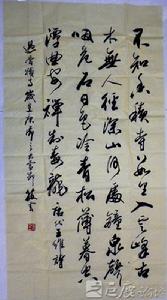 不知香積寺數里入雲峰古
木無人徑深山何處鐘泉聲
咽危石日色冷青松薄暮空
潭曲安禪制毒龍 唐代王維詩
過香積寺